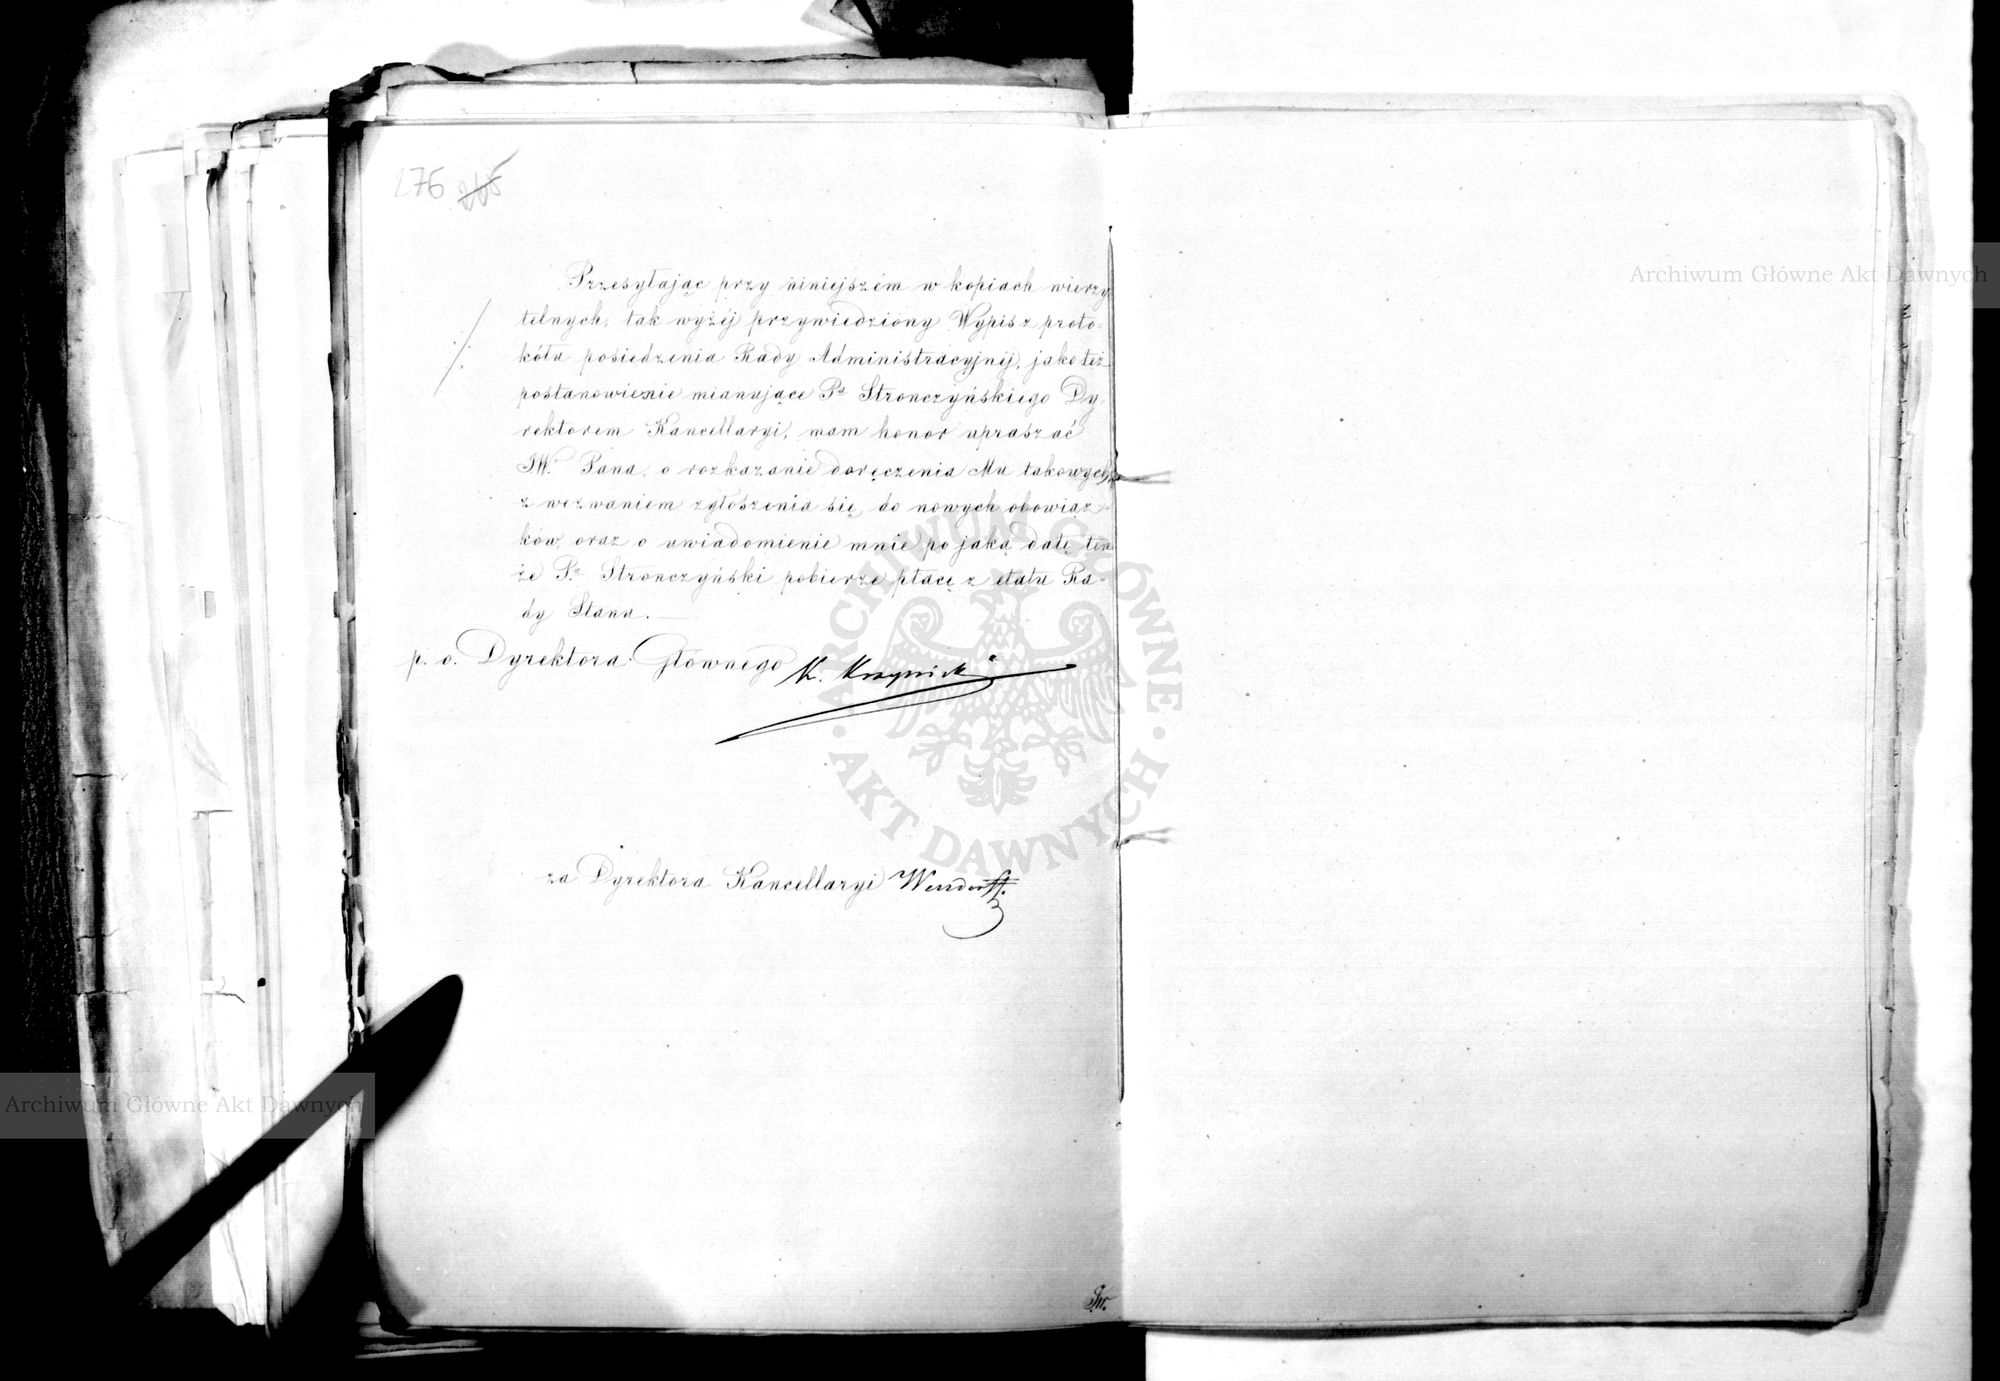 276
Przesyłając przy niniejszém w kopiach wierzy
telnych, tak wyżéj przywiedziony Wypis z proto-
kółu posiedzenia Rady Administracyjnéj, jako też
postanowienie mianujące Pa Stronczyńskiego Dy-
rektorem Kancellaryi, mam honor upraszać
JW. Pana, o rozkazanie doręczenia Mu takowych,
z wezwaniem zgłoszenia się, do nowych obowiąz-
ków, oraz o uwiadomienie mnie po jaką datę ten
że P. Stronczyński pobierze płacę z etatu Ra-
dy Stanu.
p. o. Dyrektora Głównego K.
za Dyrektora Kancellaryi
Archiwum Główne Akt Dawnych
Archiwum Główne Akt Dawnych
ARCHIWUM GŁÓWNE · AKT DAWNYCH ·